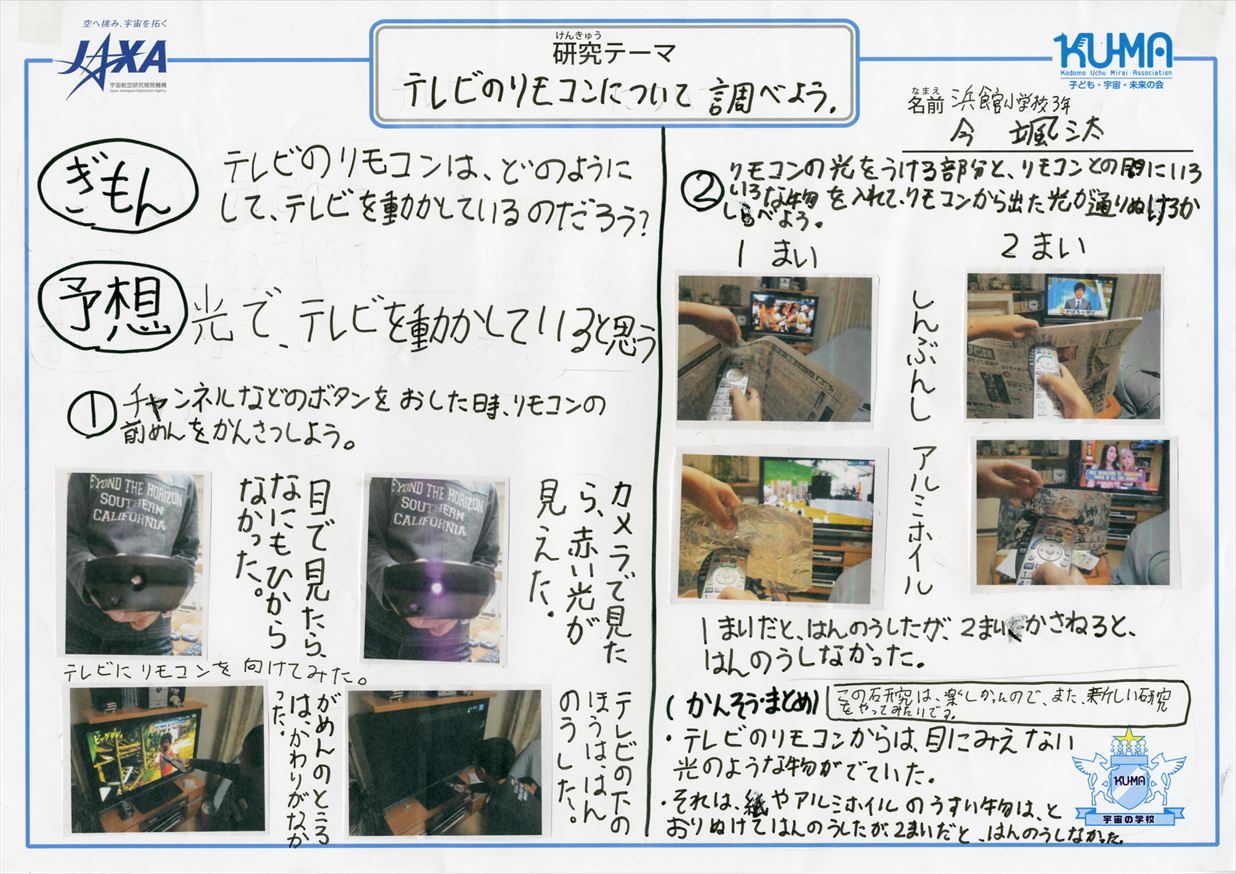 空へ挑み、宇宙を拓く
JAXA
宇宙航空研究開発機構
Japan Aerospace Exploration Agency
けんきゅう
研究テーマ
テレビのリモコンについて調べよう。
KU-MA
Kodomo Uchu Mirai Association
子ども・宇宙・未来の会
なまえ
名前 浜館小学校3年
今 颯汰
ぎもん
テレビのリモコンは、どのように
して、テレビを動かしているのだろう?
予想
光で、テレビを動かしていると思う
① チャンネルなどのボタンをおした時、リモコンの
前めんをかんさつしよう。
BEYOND THE HORIZON
SOUTHERN
CALIFORNIA
目で見たら、
なにもひから
なかった。
BEYOND THE HORIZON
SOUTHERN
CALIFORNIA
カメラで見た
ら、赤い光が
見えた。
テレビにリモコンを向けてみた。
がめんのところ
は、かわりがなか
った。
テレビの下の
ほうは、はん
のうした。
② リモコンの光をうける部分と、リモコンとの間にいろ
いろな物を入れて、リモコンから出た光が通りぬけるか
しらべよう。
1まい
2まい
しんぶんし
アルミホイル
1まいだと、はんのうしたが、2まいかさねると、
はんのうしなかった。
(かんそう・まとめ)
この石研究は、楽しかったので、また、新しい研究
をやってみたいです。
・テレビのリモコンからは、目にみえない
光のような物がでていた。
・それは、紙やアルミホイルのうすい物は、と
おりぬけてはんのうしたが、2まいだと、はんのうしなかった。
KU-MA
宇宙の学校